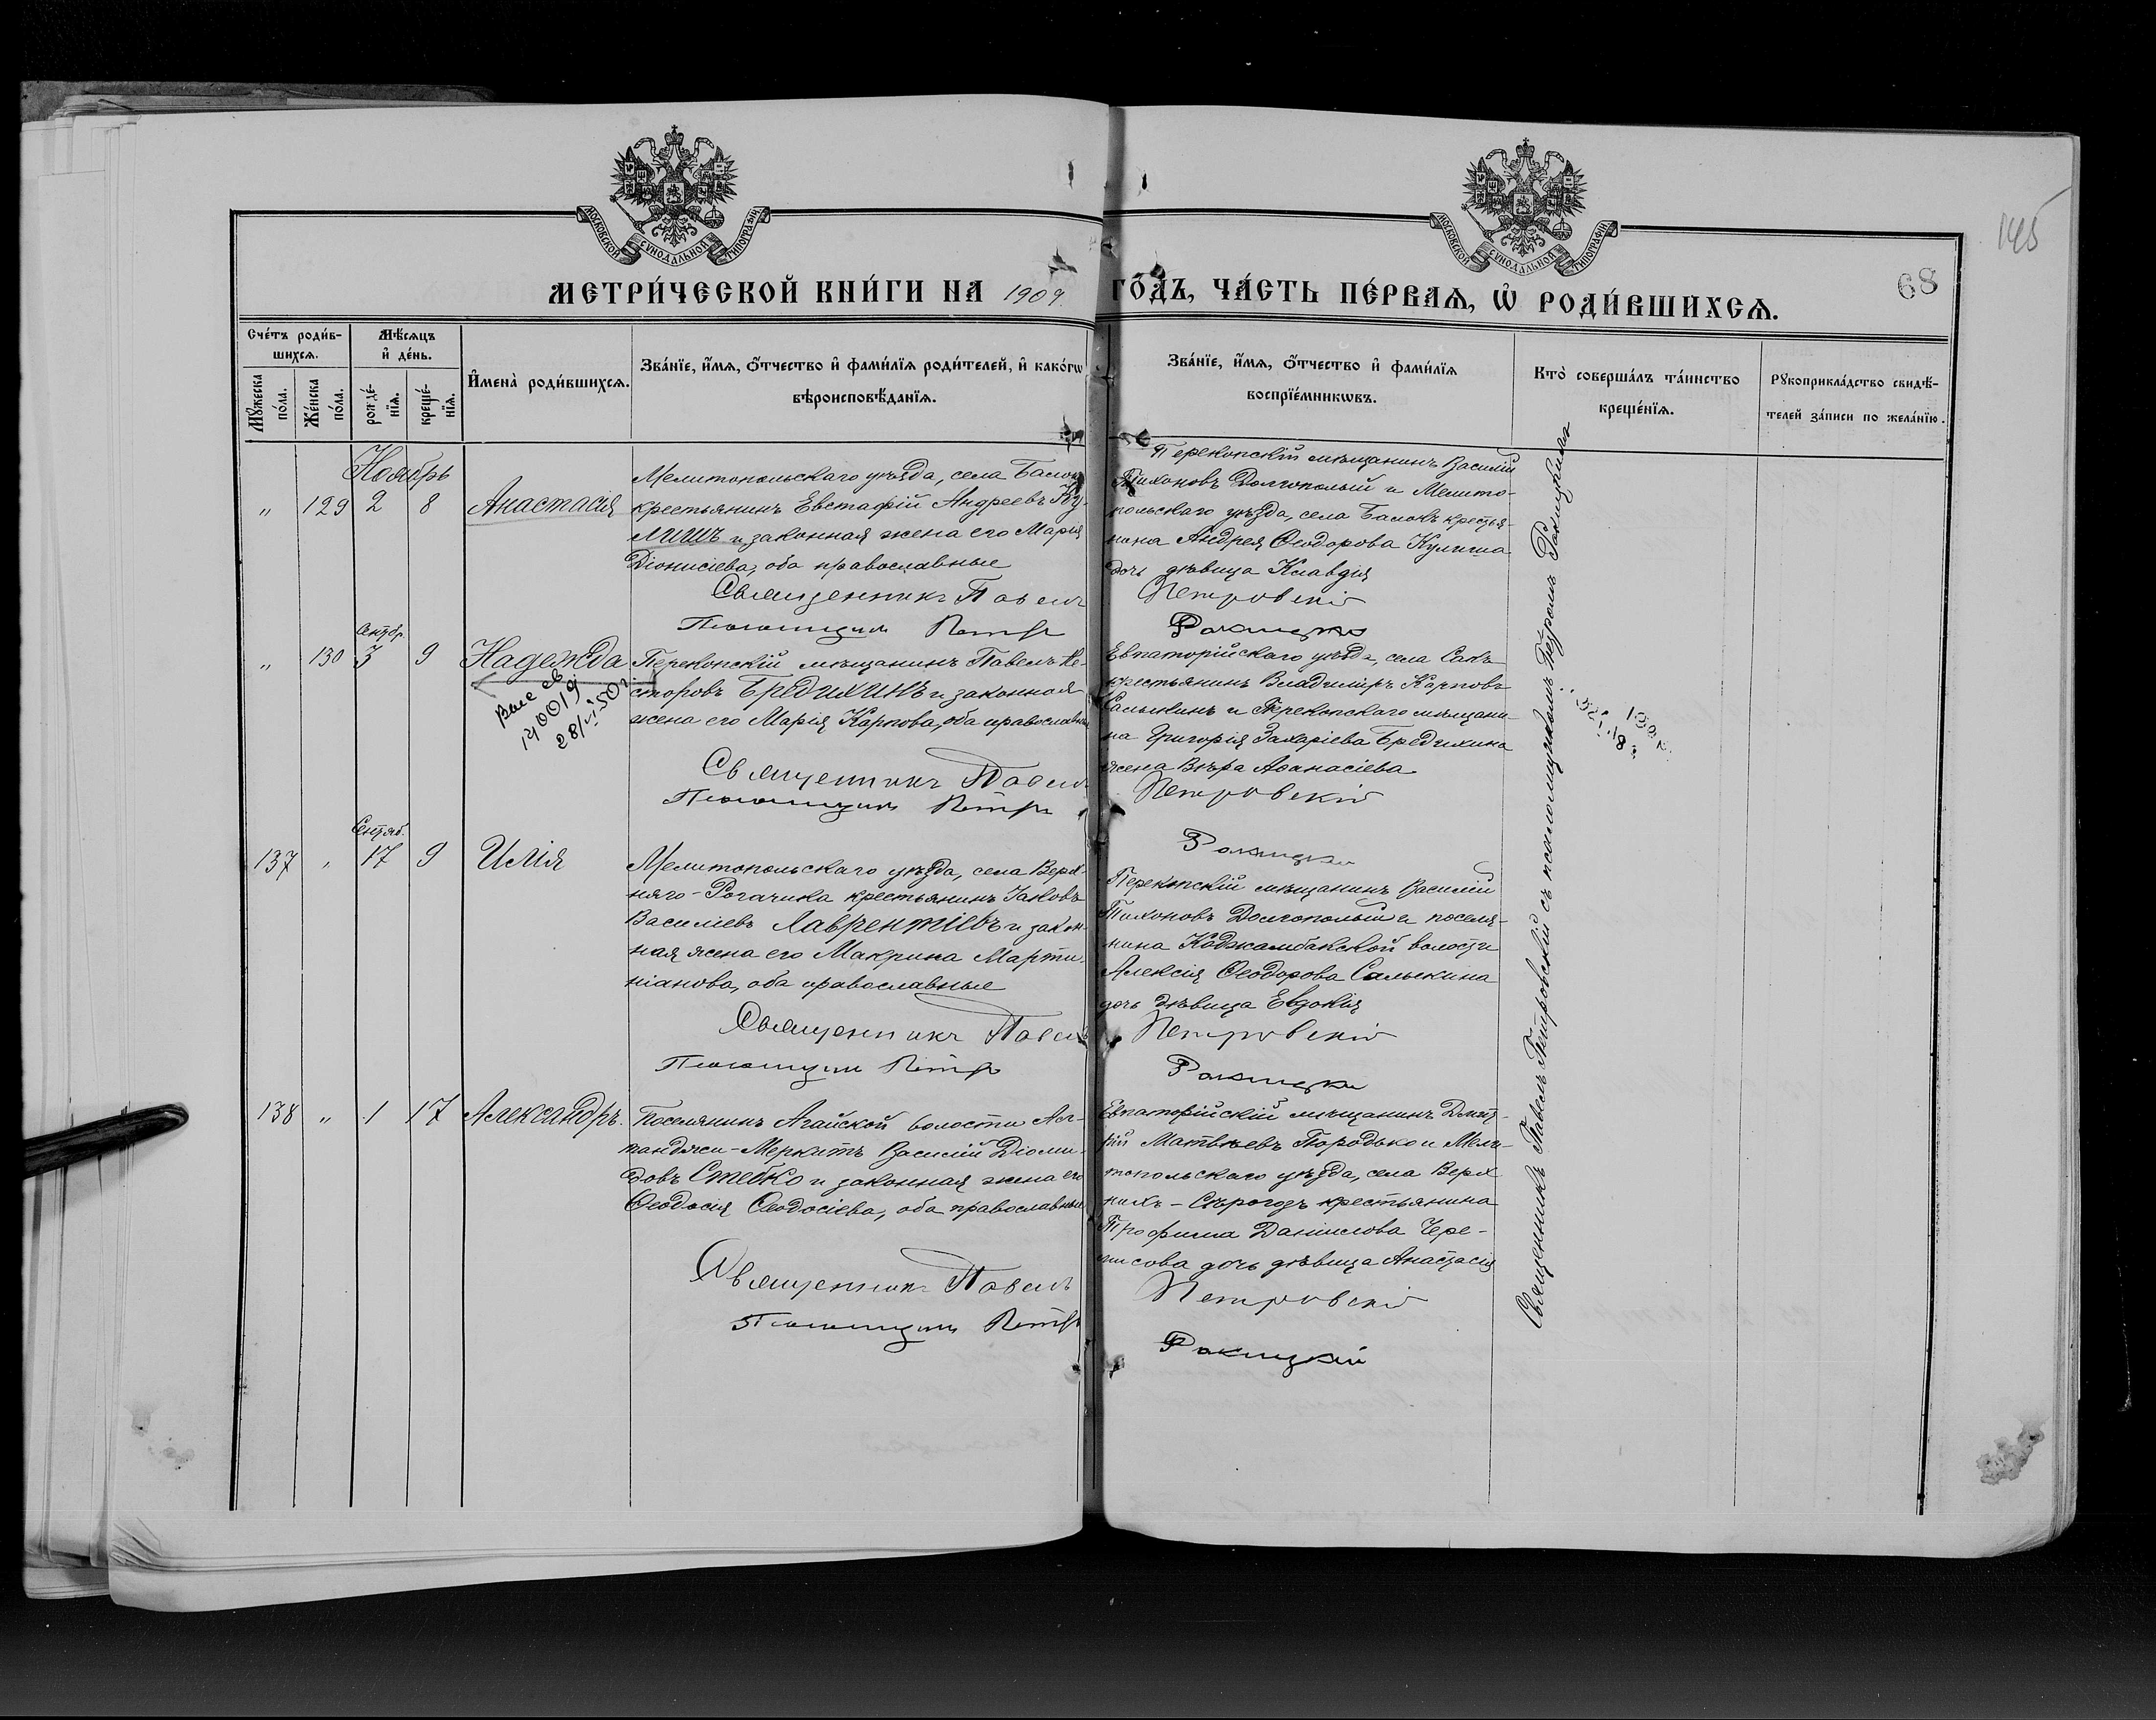 МОСКОВСКОЙ СУНОДАЛЬНОЙ ТИПОГРАФІИ
МОСКОВСКОЙ СУНОДАЛЬНОЙ ТИПОГРАФІИ
145
68
МЕТРИ́ЧЕСКОЙ КНИ́ГИ НА 1909 ГО́ДЪ, ЧА́СТЬ ПЕ́РВАѦ, Ѡ РОДИ́ВШИХСѦ.
Сче́тъ роди́в-
шихсѧ.
Мѣ́сѧцъ
и҆ де́нь.
Мꙋ́жеска
по́ла.
Же́нска
по́ла.
рожде́-
нїѧ.
креще́-
нїѧ.
И҆мена̀ роди́вшихсѧ.
Зва́нїе, и҆́мѧ, ѻ҆́тчество и҆ фами́лїѧ роди́телей, и҆ како́гѡ
вѣроисповѣ́данїѧ.
Зва́нїе, и҆́мѧ, ѻ҆́тчество и҆ фами́лїѧ
воспрїе́мникѡвъ.
Кто̀ соверша́лъ та́инство
креще́нїѧ.
Рꙋкоприкла́дство свидѣ́-
телей за́писи по жела́нїю.
Ноябрь
" 129 2 8 Анастасія
Мелитопольскаго уѣзда, села Балокъ
крестьянинъ Евстафій Андреевъ Ку-
лишъ и законная жена его Марія
Діонисіева, оба православные
Священникъ Павелъ
Псаломщикъ Петръ
Перекопскій мѣщанинъ Василій
Тихоновъ Долгополый и Мелито-
польскаго уѣзда, села Балокъ крестья-
нина Андрея Ѳеодорова Кулиша
дочь дѣвица Клавдія
Петровскій
Ракицкій
Сентбр.
" 130 3 9 Надежда
14 00191
28/VI 50 г.
Перекопскій мѣщанинъ Павелъ Не-
сторовъ Бредихинъ и законная
жена его Марія Карпова, оба православные
Священникъ Павелъ
Псаломщикъ Петръ
Евпаторійскаго уѣзда, села Сакъ
крестьянинъ Владиміръ Карповъ
Салыкинъ и Перекопскаго мѣщани-
на Григорія Захаріева Бредихина
жена Вѣра Аѳанасіева
Петровскій
Ракицкій
Сентяб.
137 " 17 9 Илія
Мелитопольскаго уѣзда, села Верх-
няго-Рогачика крестьянинъ Іаковъ
Василіевъ Лаврентіевъ и закон-
ная жена его Макрина Марти-
ніанова, оба православные
Священникъ Павелъ
Псаломщикъ Петръ
Перекопскій мѣщанинъ Василій
Тихоновъ Долгополый и поселя-
нина Коджамбакской волости
Алексія Ѳеодорова Салыкина
дочь дѣвица Евдокія
Петровскій
Ракицкій
138 " 1 17 Александръ.
Поселянинъ Агайской волости Ас-
пандяси-Меркитъ Василій Діоми-
довъ Стебко и законная жена его
Ѳеодосія Ѳеодосіева, оба православные
Священникъ Павелъ
Псаломщикъ Петръ
Евпаторійскій мѣщанинъ Дмит-
рій Матвѣевъ Бородько и Мели-
топольскаго уѣзда, села Верх-
нихъ-Сѣрогозъ крестьянина
Трофима Даніилова Чере-
мисова дочь дѣвица Анастасія
Петровскій
Ракицкій
Священникъ Павелъ Петровскій съ псаломщикомъ Петромъ Ракицкимъ